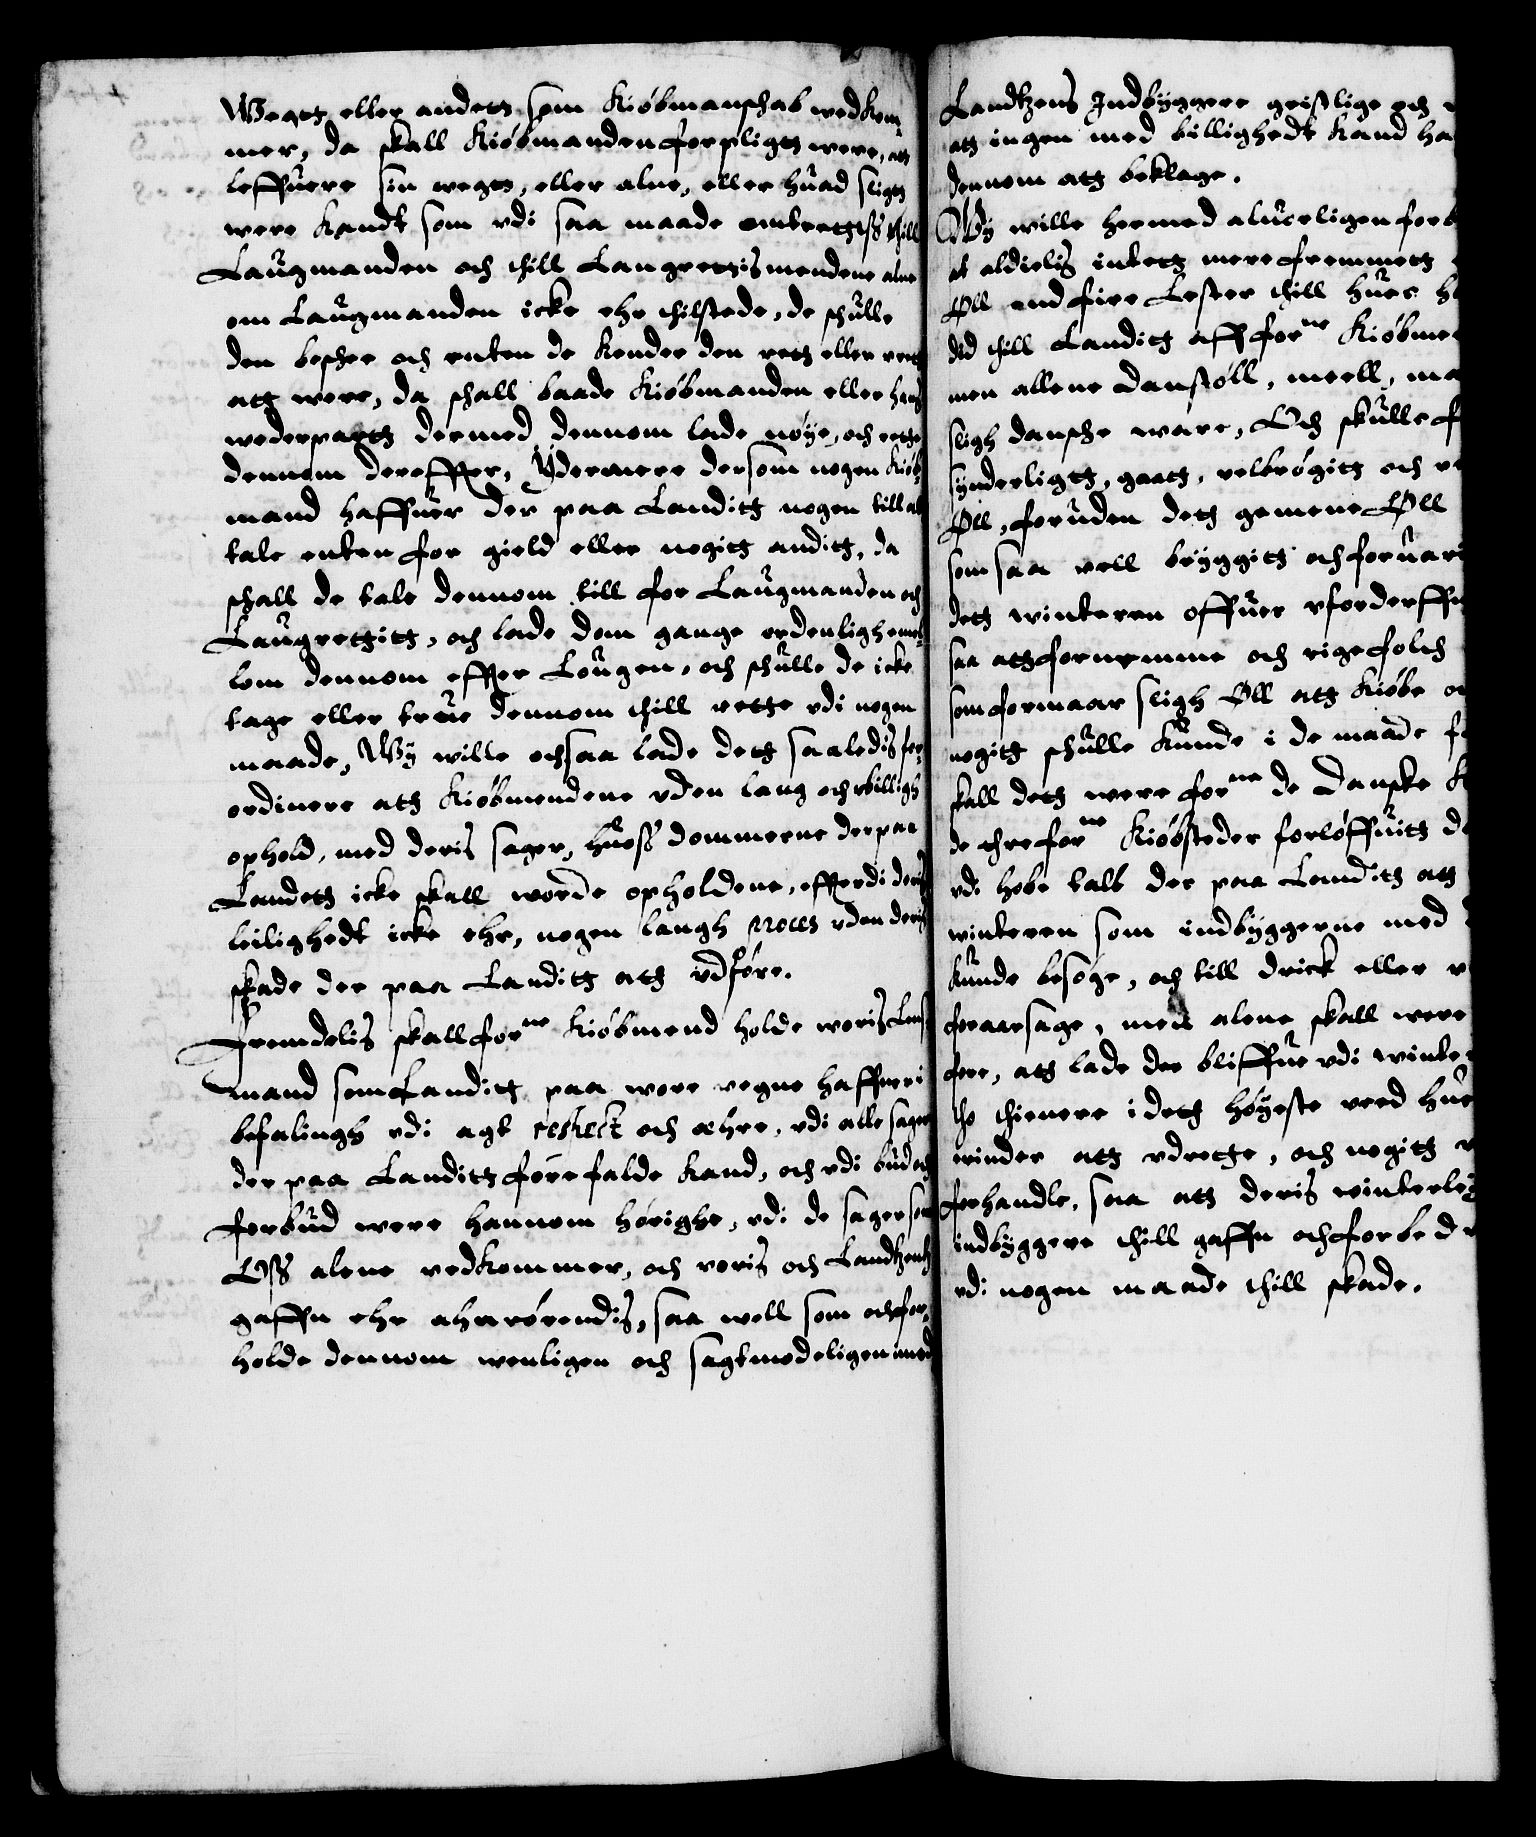 Wegtt eller andett som Kiøbmanschab wedkom¬
mer, da skall Kiøbmanden forpligtt were, att
leffuere sin wegtt, eller alne, eller huad sligtt
were kandt som vdi saa maade omtrettiss thill
Laugmanden och thill Laugrettismendene alne
om Laugmanden icke ehr thilstede, de schulle
den besehee och enten de kender den rett eller vrett
att were, da schall baade Kiøbmanden eller hans
wederpartt dermed dennom lade nøye, och rette
dennom dereffter, Ydermere dersom nogen Kiøb¬
mand haffuer der paa Landitt nogen till at
tale enten for gield eller nogitt anditt, da
schall de tale dennom till for Laugmanden och
Laugrettitt, och lade dem gange ordenligh emel¬
lom dennom effter Lougen, och schulle de icke
tage eller true dennom thill rette vdi nogen
maade, Wy wille ochsaa lade dett saaledis for¬
ordinere att Kiøbmendene vden lang och vbilligh
ophold, med deris sager, huoss dommerne der paa
Landett icke skall worde opholdene, efftterdi deris
leilighedt icke ehr, nogen langh proces vden deris
skade der paa Landitt att vdføre.
Fremdelis skall forne Kiøbmend holde woris Lens¬
mand som Landitt paa wore wegne haffuer i
befalingh vdi agt respect och æhre, vdi alle sager
der paa Landitt forefalde kand, och vdi bud och
forbud were hannom hørighe, vdi de sager som
Oss alene vedkommer, och voris och Landtzens
gaffn ehr anrørendis, saa well som och for¬
holde dennom wenligen och sagtmodeligen imod
Landtzens Indbyggere geistlige och
att ingen med billighedt kand ha
dennom att beklage.
Wy wille hermed aluerligen forb
at aldielis intett mere fremmett
Øll end fire Lester thill huer h
did thill Landitt aff forne Kiøbme
men allene danstøll, meell, ma
sligh dansche ware, Och skulle f
synderligtt, gaatt, velbrøgitt och ve
Øll, foruden dett gemene Øll
som saa vell bryggitt och foruari
dett winteren offuer vforderffu
saa att fornemme och rige folch
som formaar sligh Øll att kiøbe o
nogitt schulle kunde i de maade f
skall dett were forne de Danske K
de thre forne Kiøbsteder forløffuitt d
vdi hobe tall der paa Landitt att
winteren som indbyggerne med
kunde besøge, och till drick eller
foraarsage, men alene skall were
fore, att lade der bliffue vdi winte
tho thienere i dett høyeste ved hue
winder att vdrette, och nogitt
forhandle, saa att deris winterley
indbyggere thill gaffn och forbedr
vdi nogen maade thill skade.